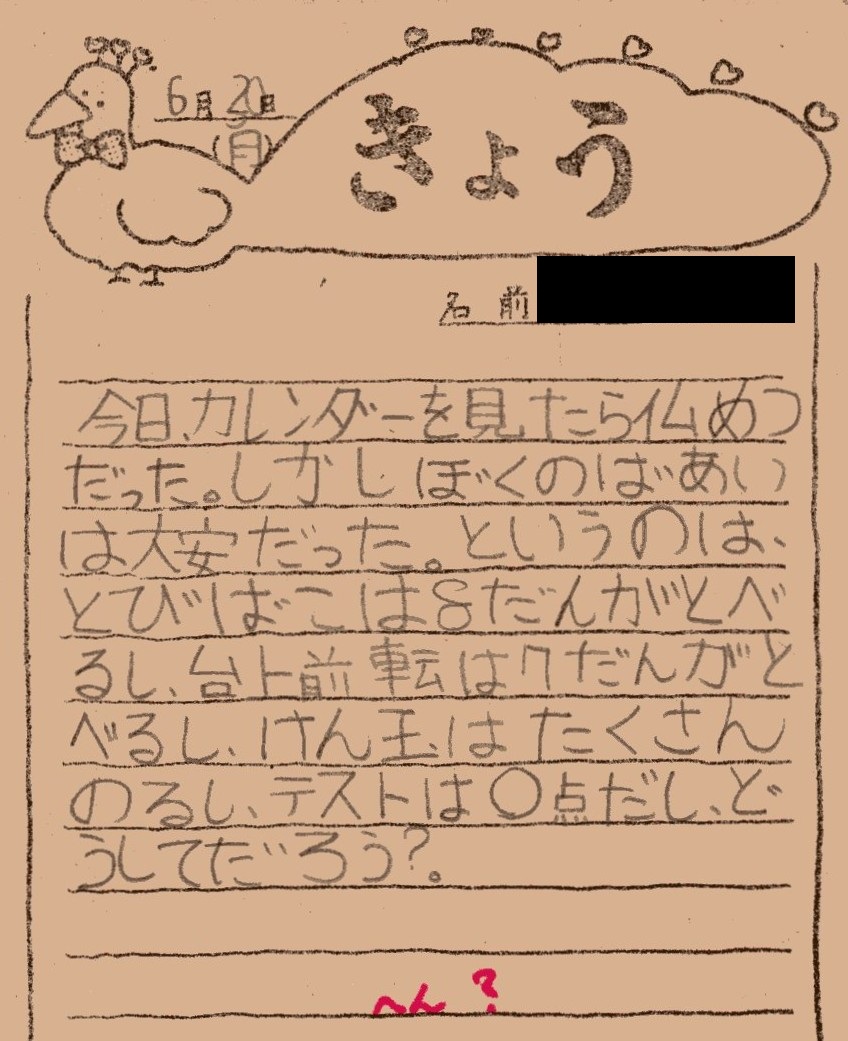 6月20日
(月)
きょう
名前
今日、カレンダーを見たら仏めつ
だった。しかしぼくのばあい
は大安だった。というのは、
とびばこは8だんがとべ
るし、台上前転は7だんがと
べるし、けん玉はたくさん
のるし、テストは〇点だし、ど
うしてだろう?。
へん?